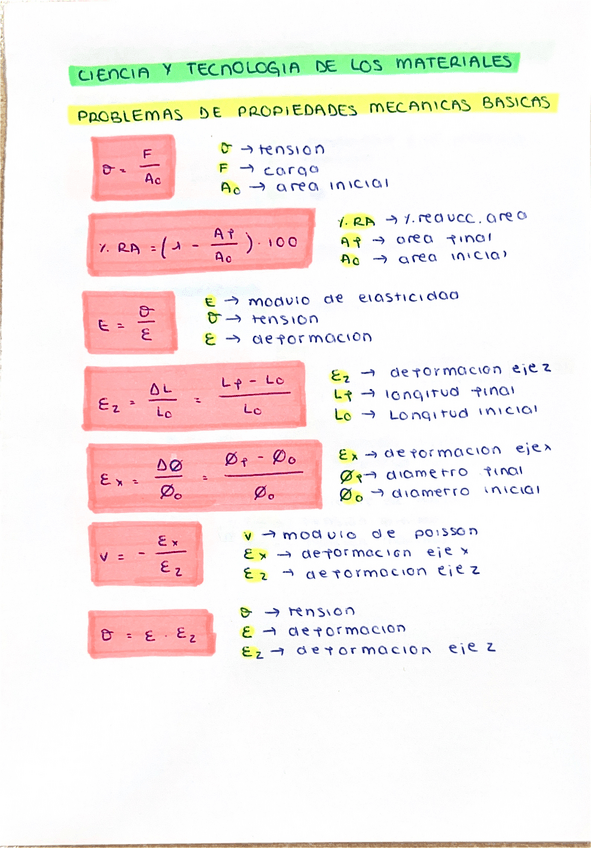 CIENCIA Y TECNOLOGIA DE LOS MATERIALES
PROBLEMAS DE PROPIEDADES MECANICAS BASICAS
σ = F / A₀
σ → tension
F → carga
A₀ → area inicial
% RA = (1 - Af / A₀) · 100
% RA → % reducc. area
Af → area final
A₀ → area inicial
E = σ / ε
E → modulo de elasticidad
σ → tension
ε → deformacion
εz = ΔL / L₀ = Lf - L₀ / L₀
εz → deformacion eje z
Lf → longitud final
L₀ → Longitud inicial
εx = ΔØ / Ø₀ = Øf - Ø₀ / Ø₀
εx → deformacion eje x
Øf → diametro final
Ø₀ → diametro inicial
v = - εx / εz
v → modulo de poisson
εx → deformacion eje x
εz → deformacion eje z
σ = ε · εz
σ → tension
ε → deformacion
εz → deformacion eje z